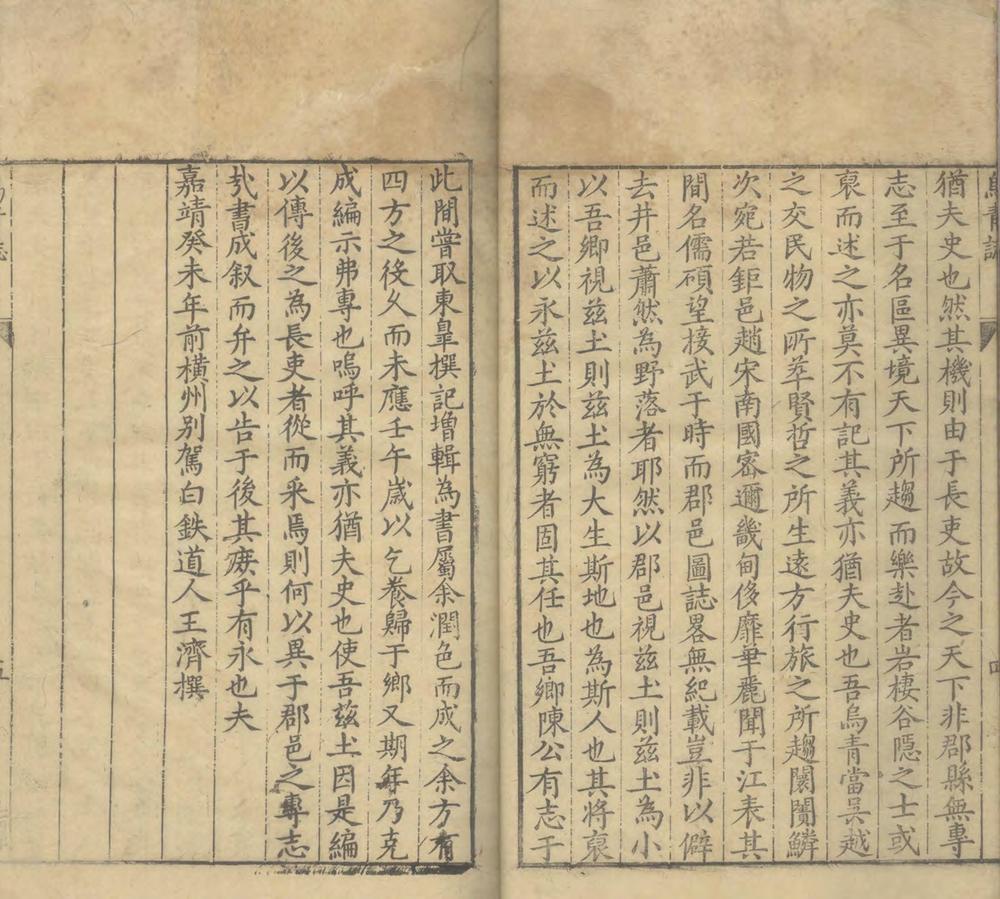 烏青誌
四
猶夫史也然其機則由于長吏故今之天下非郡縣無專
志至于名區異境天下所趨而樂赴者岩棲谷隱之士或
裒而述之亦莫不有記其義亦猶夫史也吾烏青當吳越
之交民物之所萃賢哲之所生遠方行旅之所趨闤闠鱗
次宛若鉅邑趙宋南國密邇畿甸侈靡華麗聞于江表其
間名儒碩望接武于時而郡邑圖誌畧無紀載豈非以僻
去井邑蕭然為野落者耶然以郡邑視兹圡則兹圡為小
以吾鄉視兹圡則兹圡為大生斯地也為斯人也其將裒
而述之以永兹圡於無窮者固其任也吾鄉陳公有志于
此間嘗取東臯撰記増輯為書屬余潤色而成之余方有
四方之役乆而未應壬午嵗以乞養歸于鄉又期年乃克
成編示弗專也嗚呼其義亦猶夫史也使吾兹圡因是編
以傳後之為長吏者從而采焉則何以異于郡邑之專志
㢤書成叙而弁之以告于後其庻乎有永也夫
嘉靖癸未年前橫州别駕白鉄道人王濟撰
志
五